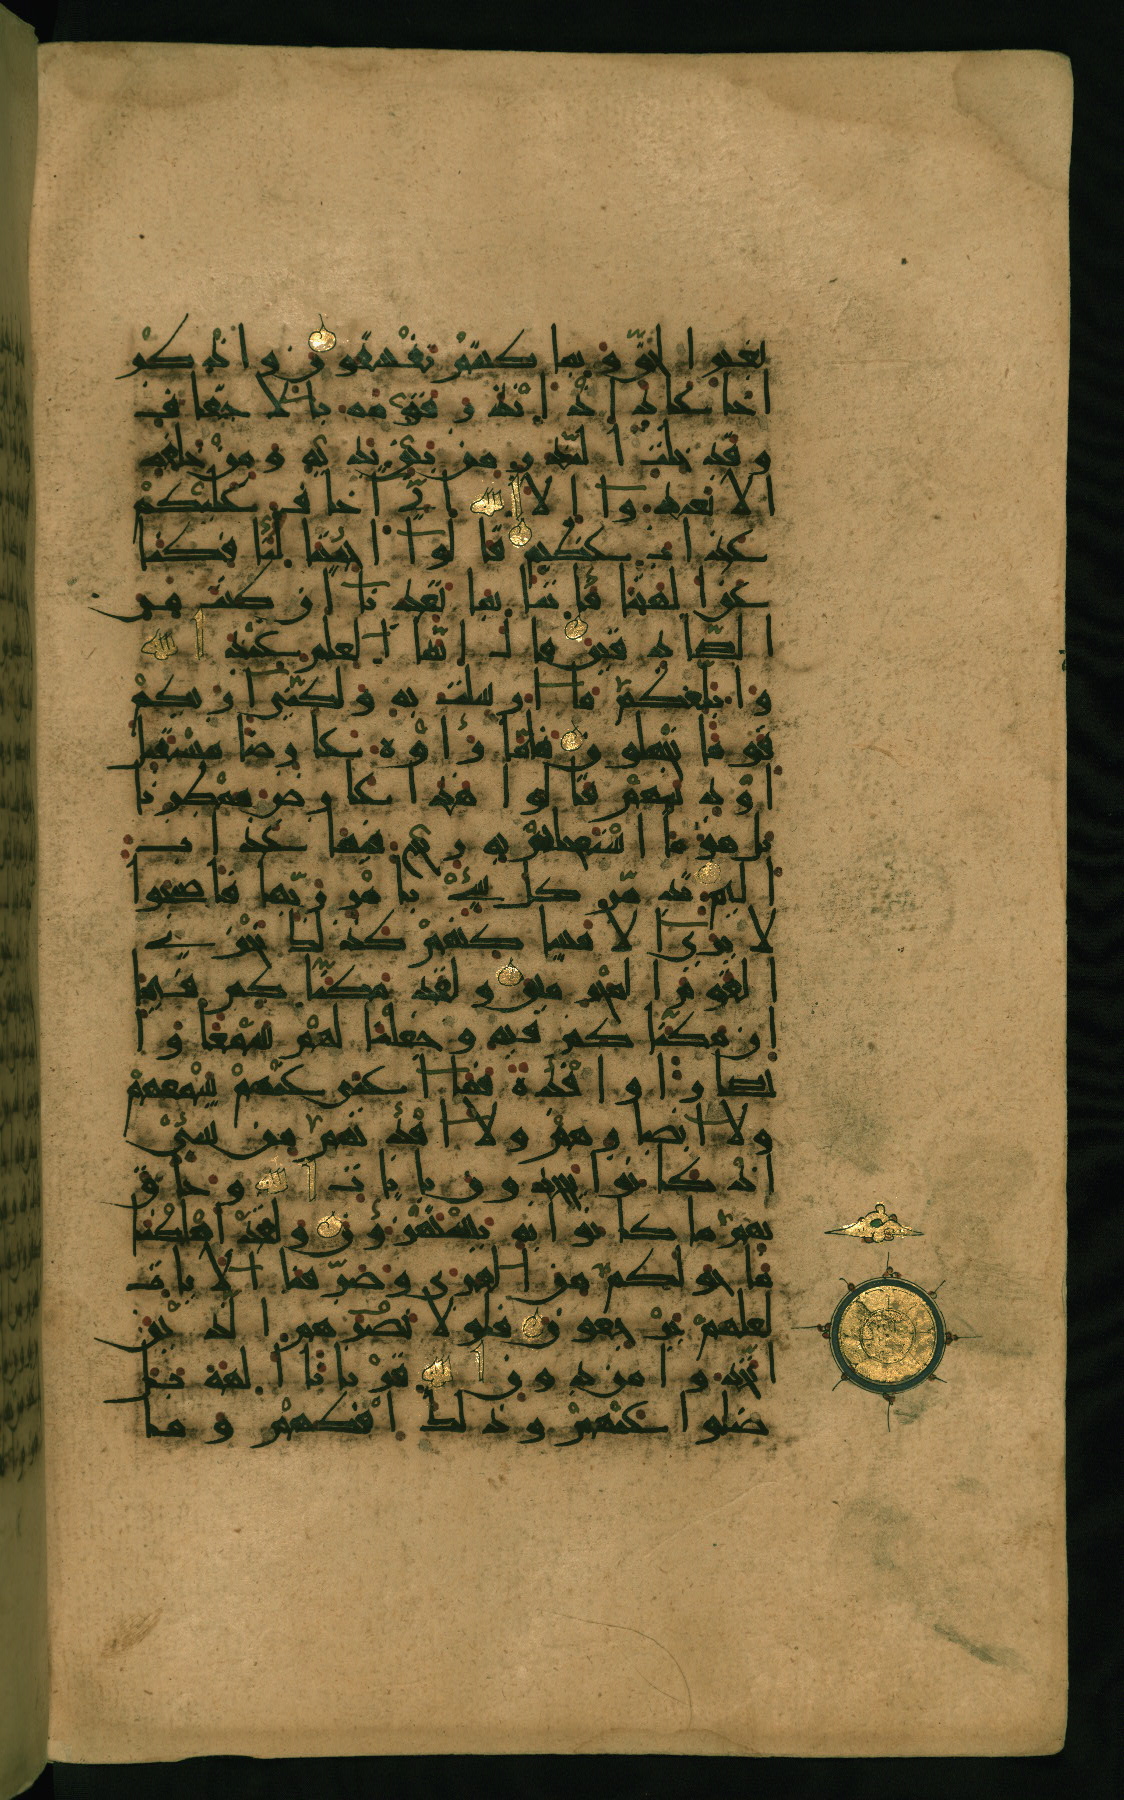 بغير الحق وبما كنتم تفسقون واذكر
اخا عاد اذ انذر قومه بالاحقاف
وقد خلت النذر من بين يديه ومن خلفه
الا تعبدوا الا الله اني اخاف عليكم
عذاب عظيم قالوا اجئتنا لتأفكنا
عن الهتنا فأتنا بما تعدنا ان كنت من
الصادقين قال انما العلم عند الله
وابلغكم ما ارسلت به ولكني اريكم
قوما تجهلون فلما رأوه عارضا مستقبل
اوديتهم قالوا هذا عارض ممطرنا
بل هو ما استعجلتم به ريح فيها عذاب
اليم تدمر كل شيء بامر ربها فاصبحوا
لا يرى الا مساكنهم كذلك نجزي
القوم المجرمين ولقد مكناهم فيما
ان مكناكم فيه وجعلنا لهم سمعا وا
بصارا وافئدة فما اغنى عنهم سمعهم
ولا ابصارهم ولا افئدتهم من شيء
اذ كانوا يجحدون بايات الله وحاق
بهم ما كانوا به يستهزؤن ولقد اهلكنا
ما حولكم من القرى وصرفنا الايات
لعلهم يرجعون فلولا نصرهم الذين
اتخذوا من دون الله قربانا الهة بل
ضلوا عنهم وذلك افكهم وما